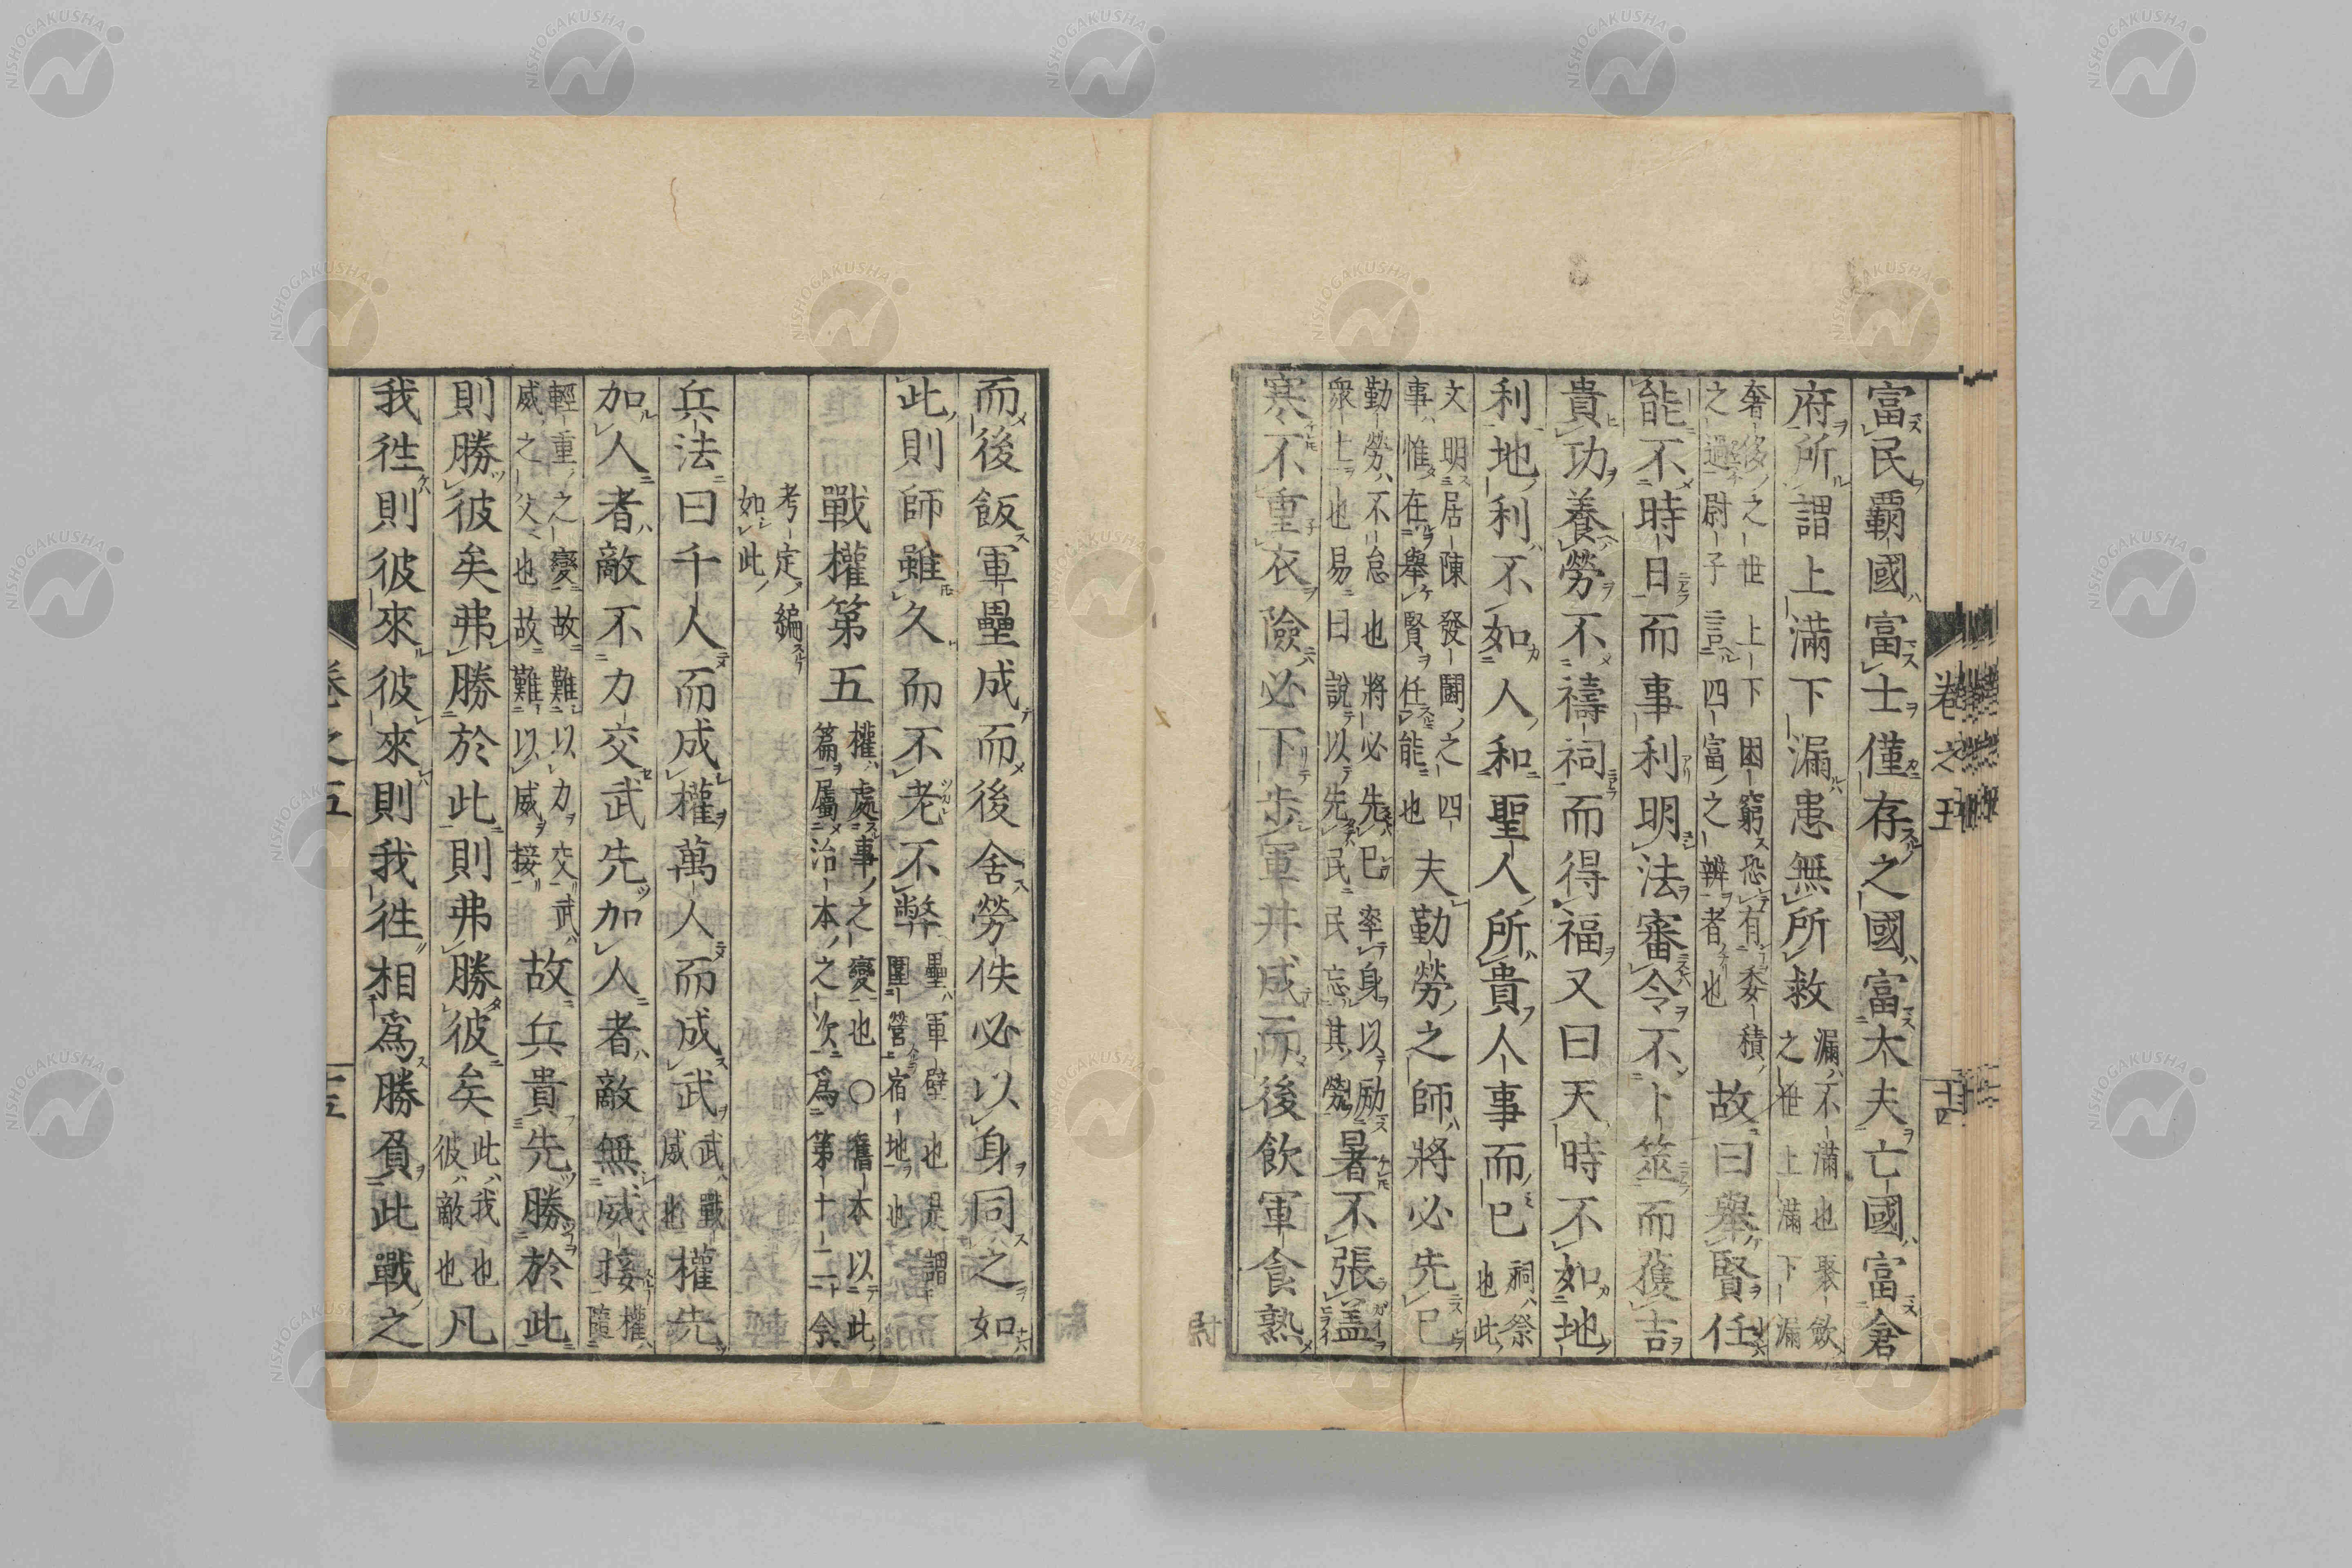 富民覇國富士僅存之國富大夫亡國富倉
府所謂上滿下漏患無所救
漏不滿也聚歛
之世上滿下漏
奢侈之世上下困窮恐有委積
之過尉子言四富之之辨者也
故曰舉賢任
能不時日而事利明法審令不卜筮而獲吉
貴功養勞不禱祠而得福又曰天時不如地
利地利不如人和聖人所貴人事而已
祠ハ祭
也此
文明居陳發闢之四
事惟在舉賢任能也
夫勤勞之師將必先已
勤勞不怠也將必先已率身以励
衆上也易曰說以先民民忘其勞
暑不張盖
寒不重衣險必下步軍井成而後飲軍食熟
卷之五
十四
而後飯軍壘成而後舍勞佚必以身同之如
此則師雖久而不老不弊
壘軍壁也是謂
圍營宿地也
戰權第五
權處事之變也〇舊本以此
篇屬治本之次爲第十二今
考定編
如此
兵法曰千人而成權萬人而成武
武戰
威也
權先
加人者敵不力交武先加人者敵無威接
權
隨
輕重之變故難以力交武
威之父也故難以威接
故兵貴先勝於此
則勝彼矣弗勝於此則弗勝彼矣
此我也
彼敵也
凡
我徃則彼來彼來則我徃相爲勝負此戰之
卷之五
十五
NISHOGAKUSHA